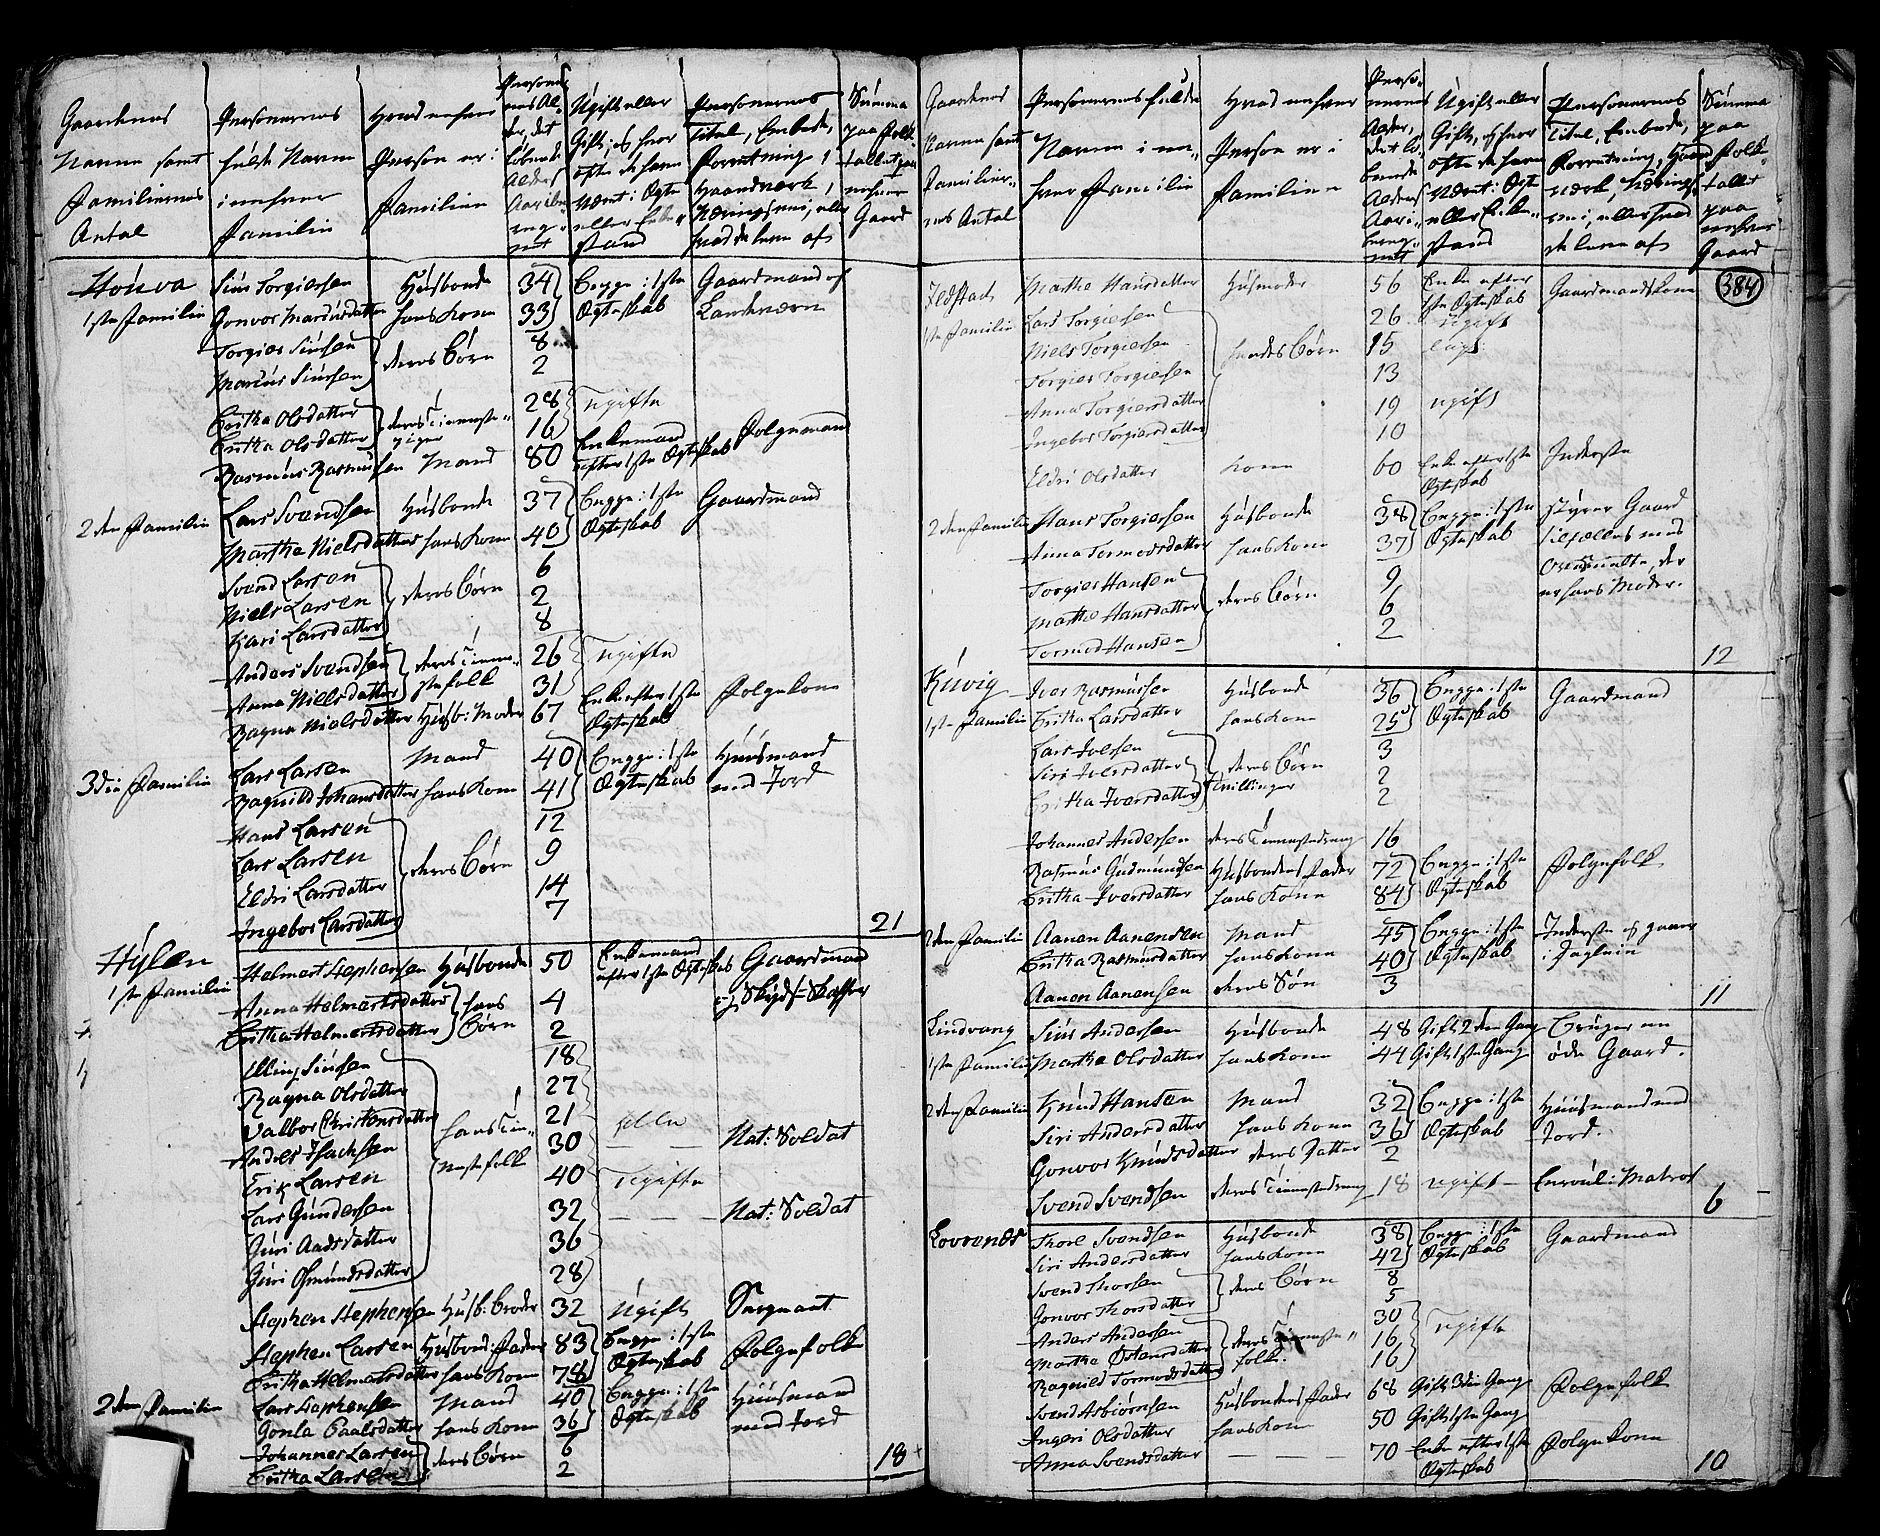 Gaardenes Navne samt Familiernes Antal | Personernes fulde Navne i enhver Familie | Hvad enhver Person er i Familien | Personernes Alder, det løbende Alders Aar iberegnet | Ugift eller Gift, og hvor ofte de have været i Ægte eller Enkestand | Personernes Titel, Embede, Forretning, Haandværk, Næringsvei, eller hvad de leve af | Summa paa Folketallet paa enhver Gaard
Hønva
1ste Familie | Siur Torgiersen | Husbonde | 34 | Begge i 1ste | Gaardmand af
Gonvor Mariusdatter | hans Kone | 33 | Ægteskab | Landværn
Torgier Siursen | deres Børn | 8
Marius Siursen | 2
Britha Olsdatter | deres Tieneste- | 28 | Ugifte
Britha Olsdatter | piger | 16
Rasmus Rasmusen | Mand | 80 | Enkemand efter 1ste Ægteskab | Folgemand
2den Familie | Lars Svendsen | Husbonde | 37 | Begge i 1ste | Gaardmand
Martha Nielsdatter | hans Kone | 40 | Ægteskab
Svend Larsen | 6
Niels Larsen | deres Børn | 2
Kari Larsdatter | 8
Anders Svendsen | deres Tiene- | 26 | Ugifte
Anna Nielsdatter | stefolk | 31
Ragna Nielsdatter | Husb: Moder | 67 | Enke efter 1ste Ægteskab | Folgekone
3die Familie | Lars Larsen | Mand | 40 | Begge i 1ste | Huusmand
Ragnild Johansdatter | hans Kone | 41 | Ægteskab | med Jord
Hans Larsen | 12
Lars Larsen | deres Børn | 9
Eldri Larsdatter | 14
Ingebor Larsdatter | 7 | 21
Hylen
1ste Familie | Helmert Stephensen | Husbonde | 50 | Enkemand efter 1ste Ægteskab | Gaardmand
Anna Helmertsdatter | hans | 4 | og Skyds-Skaffer
Britha Helmertsdatter | Børn | 2
Elling Siursen | 18
Ragna Olsdatter | 27
Valbor Christensdatter | hans Tie- | 21 | Alle
Anders Isachsen | 30 | Nat: Soldat
Erik Larsen | nestefolk | 40 | Ugifte
Lars Gundersen | 32 | Nat: Soldat
Guri Aadsdatter | 36
Guri Osmundsdatter | 28
Stephen Stephensen | Husb: Broder | 32 | Ugift | Sergeant
Stephen Larsen | Husbond: Fader | 83 | Begge i 1ste | Folgefolk
Britha Helmertsdatter | hans Kone | 78 | Ægteskab
2den Familie | Lars Stephensen | Mand | 40 | Begge i 1ste | Huusmand
Gonla Paalsdatter | hans Kone | 36 | Ægteskab | med Jord
Johannes Larsen | deres Børn | 6
Britha Larsen | 2 | 18
Gaardenes Navne samt Familiernes Antal | Personernes fulde Navne i enhver Familie | Hvad enhver Person er i Familien | Personernes Alder, det løbende Alders Aar iberegnet | Ugift eller Gift, og hvor ofte de have været i Ægte eller Enkestand | Personernes Titel, Embede, Forretning, Haandværk, Næringsvei, eller hvad de leve af | Summa paa Folketallet paa enhver Gaard
384
1ste Familie | Martha Hansdatter | Husmoder | 56 | Enke efter 1ste Ægteskab | Gaardmandskone
Lars Torgiersen | 26 | Ugift
Niels Torgiersen | hendes Børn | 15
Torgier Torgiersen | 13
Anna Torgiersdatter | 19 | Ugift
Ingebor Torgiersdatter | 10
Eldri Olsdatter | Kone | 60 | Enke efter 1ste Ægteskab | Inderste
2den Familie | Hans Torgiersen | Husbonde | 38 | Begge i 1ste | styrer Gaard
Anna Tormodsdatter | hans Kone | 37 | Ægteskab | tilfælles med
Torgier Hansen | 9 | er hans Moder.
Martha Hansdatter | deres Børn | 6
Tormod Hansen | 2 | 12
Kuvig
1ste Familie | Iver Rasmussen | Husbonde | 36 | Begge i 1ste | Gaardmand
Britha Larsdatter | hans Kone | 25 | Ægteskab
Lars Iversen | 3
Siri Iversdatter | deres Børn | 2
Britha Iversdatter | Tvillinger | 2
Johannes Andersen | deres Tienestedreng | 16
Rasmus Gudmundsen | Husbondens Fader | 72 | Begge i 1ste | Folgefolk
Britha Iversdatter | hans Kone | 84 | Ægteskab
2den Familie | Aanen Aanensen | Mand | 45 | Begge i 1ste | Inderste og gaaer
Britha Rasmusdatter | hans Kone | 40 | Ægteskab | i Dagleie
Aanen Aanensen | deres Søn | 3 | 11
Lindvang | Siur Andersen | Husbonde | 48 | Gift 2den Gang | Bruger en
1ste Familie | Martha Olsdatter | hans Kone | 44 | Gift 1ste Gang | øde Gaard.
2den Familie | Knud Hansen | Mand | 32 | Begge i 1ste | Huusmand med
Siri Andersdatter | hans Kone | 36 | Ægteskab | Jord.
Gonvor Knudsdatter | deres Datter | 2
Svend Svendsen | deres Tienestedreng | 18 | Ugift | Enroul: Matros | 6
Lovrenæs | Thore Svendsen | Husbonde | 38 | Begge i 1ste | Gaardmand
Siri Andersdatter | hans Kone | 42 | Ægteskab
Svend Thorsen | deres Børn | 8
Gonvor Thorsdatter | 5
Anders Andersen | deres Tieneste- | 30 | Ugifte
Martha Østensdatter | folk. | 16
Ragnild Tormodsdatter | 16
Svend Asbiørnsen | Husbondens Fader | 68 | Gift 3die Gang | Folgefolk
Ingeri Olsdatter | hans Kone | 50 | Gift 1ste Gang
Anna Svendsdatter | 70 | Enke efter 1ste Ægteskab | Folgekone | 10